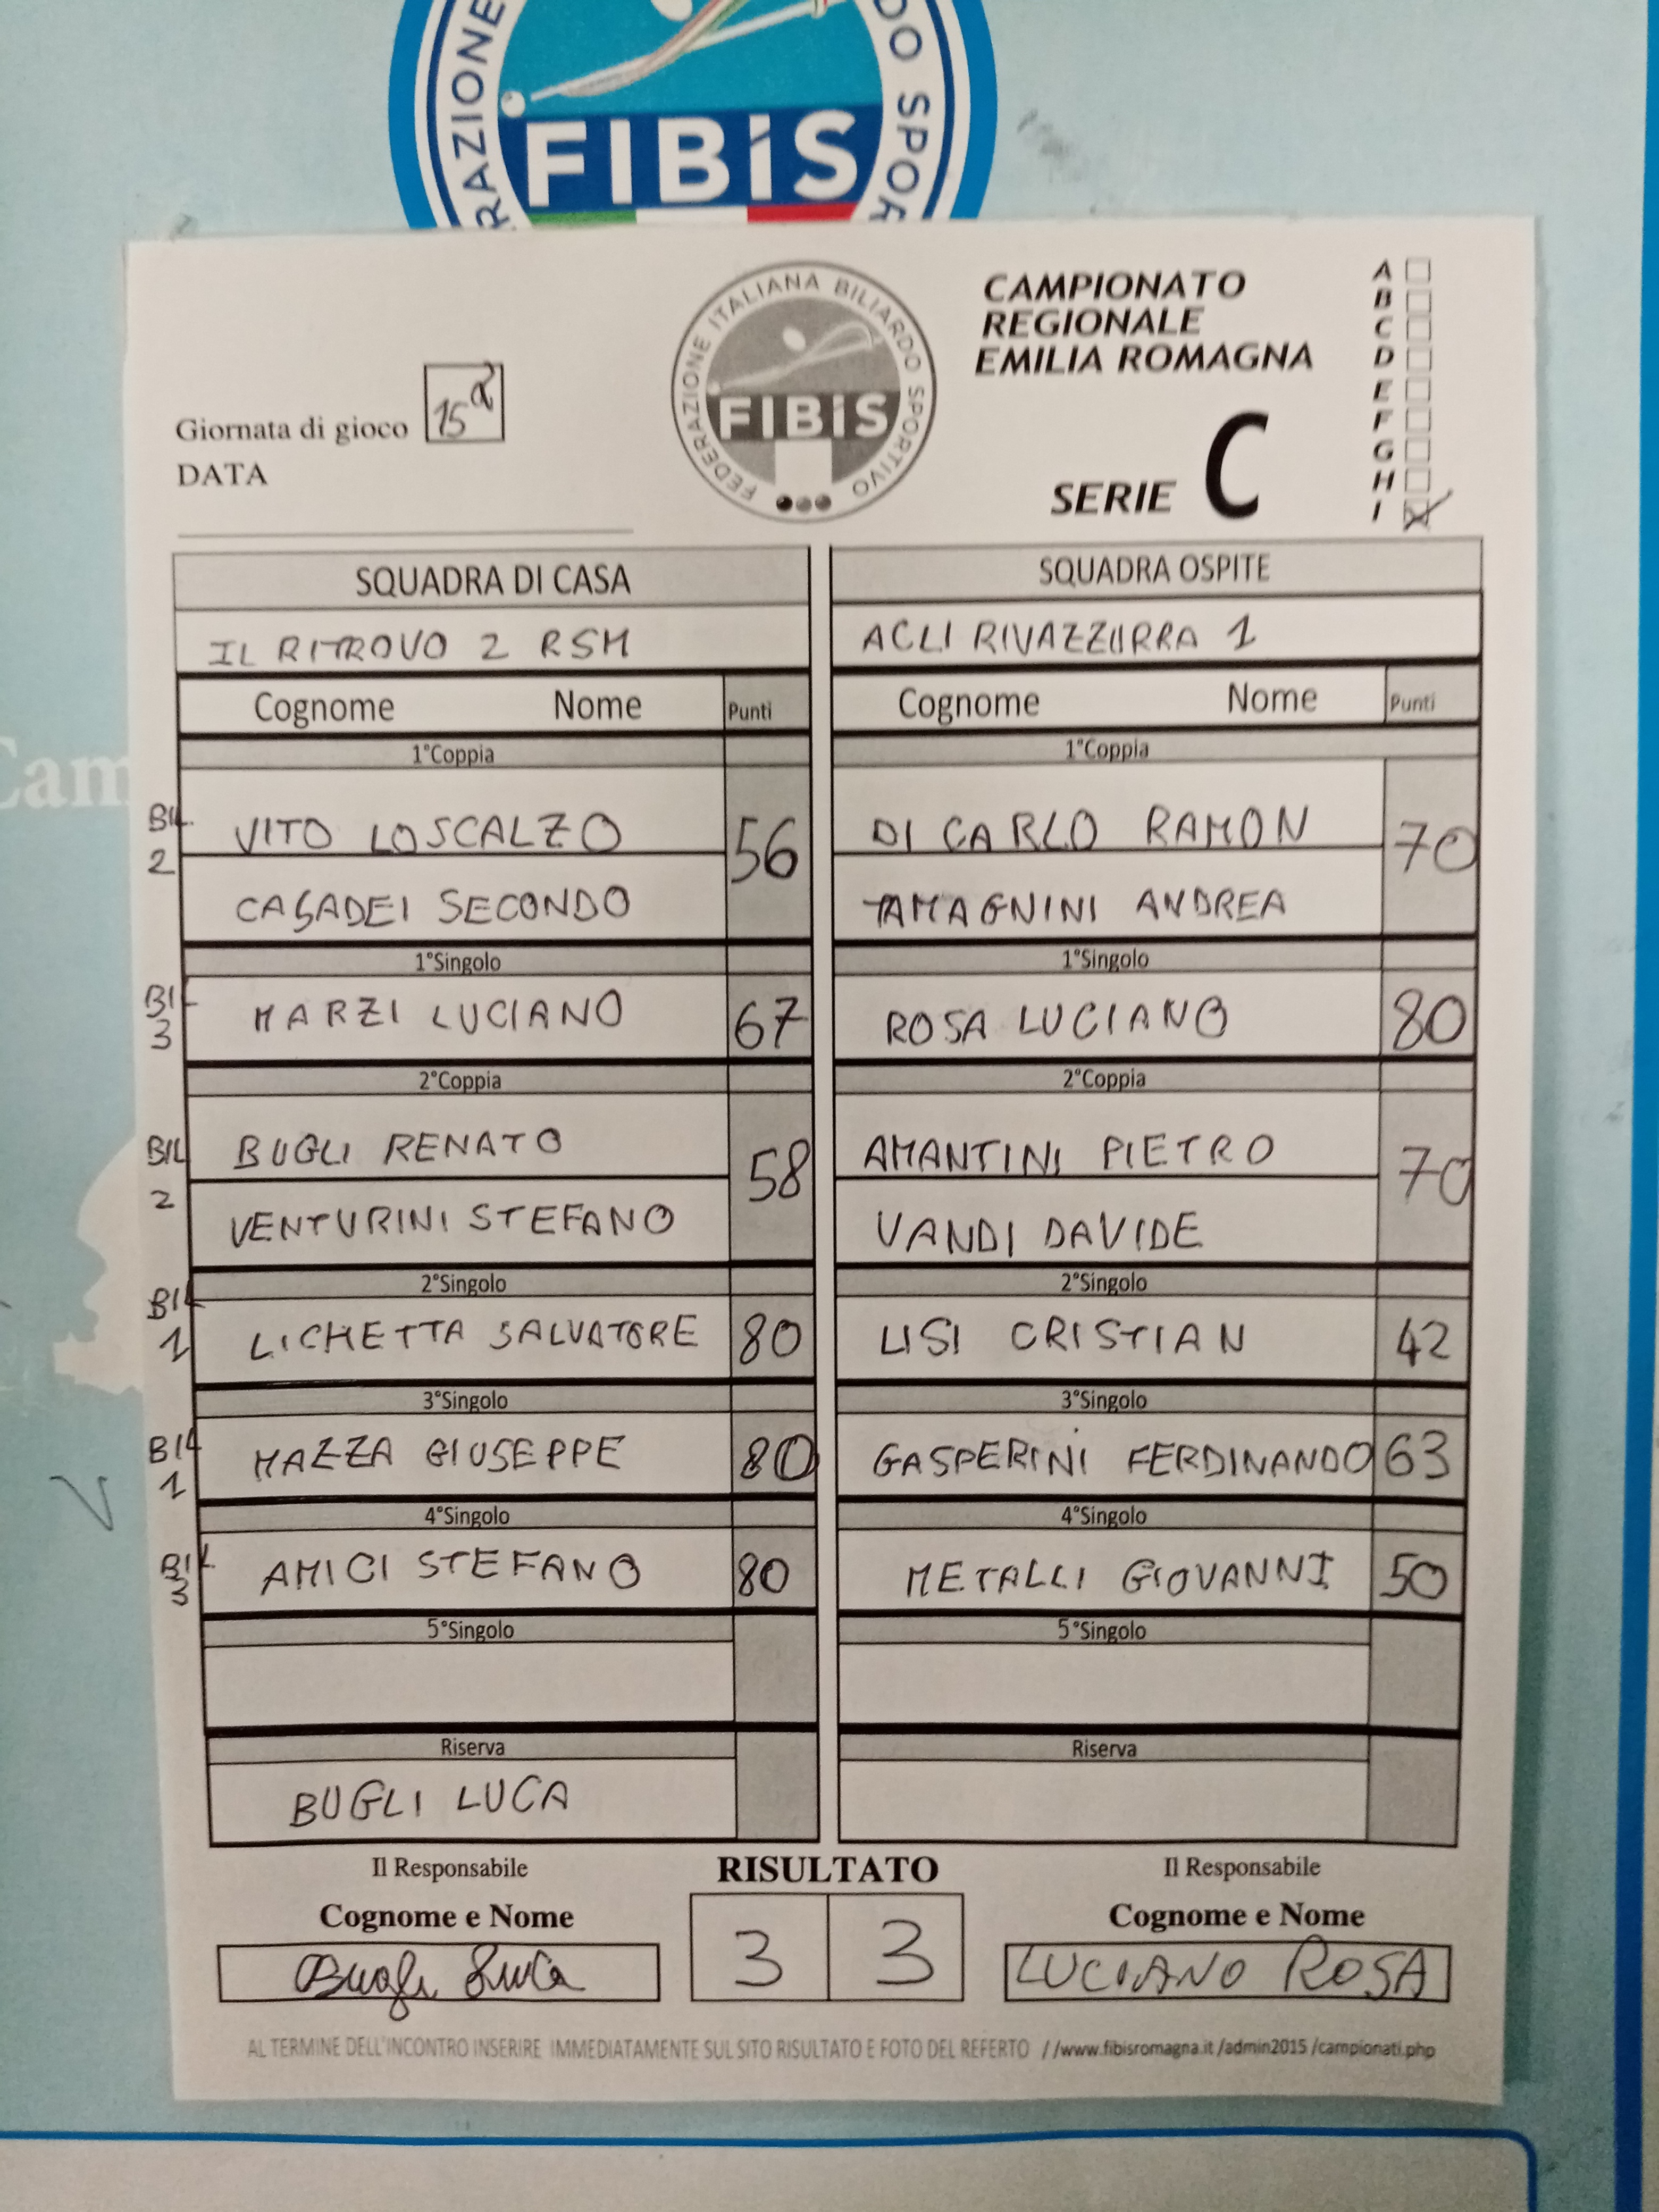 FIBiS
FEDERAZIONE ITALIANA BILIARDO SPORTIVO
FIBiS
CAMPIONATO
REGIONALE
EMILIA ROMAGNA
SERIE C
A
B
C
D
E
F
G
H
I
Giornata di gioco 15ª
DATA
SQUADRA DI CASA
IL RITROVO 2 RSM
Cognome Nome Punti
1°Coppia
BIL. 2
VITO LOSCALZO
CASADEI SECONDO
56
1°Singolo
BIL 3
MARZI LUCIANO 67
2°Coppia
BIL 2
BUGLI RENATO
VENTURINI STEFANO
58
2°Singolo
BIL 1
LICHETTA SALVATORE 80
3°Singolo
BIL 1
MAZZA GIUSEPPE 80
4°Singolo
BIL 3
AMICI STEFANO 80
5°Singolo
Riserva
BUGLI LUCA
SQUADRA OSPITE
ACLI RIVAZZURRA 1
Cognome Nome Punti
1°Coppia
DI CARLO RAMON
TAMAGNINI ANDREA
70
1°Singolo
ROSA LUCIANO 80
2°Coppia
AMANTINI PIETRO
VANDI DAVIDE
70
2°Singolo
LISI CRISTIAN 42
3°Singolo
GASPERINI FERDINANDO 63
4°Singolo
METALLI GIOVANNI 50
5°Singolo
Riserva
Il Responsabile
Cognome e Nome
Bugli Luca
RISULTATO
3 3
Il Responsabile
Cognome e Nome
LUCIANO ROSA
AL TERMINE DELL'INCONTRO INSERIRE IMMEDIATAMENTE SUL SITO RISULTATO E FOTO DEL REFERTO //www.fibisromagna.it /admin2015 /campionati.php